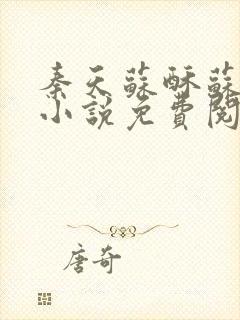 秦天蘇酥蘇
小說免費閱
唐奇